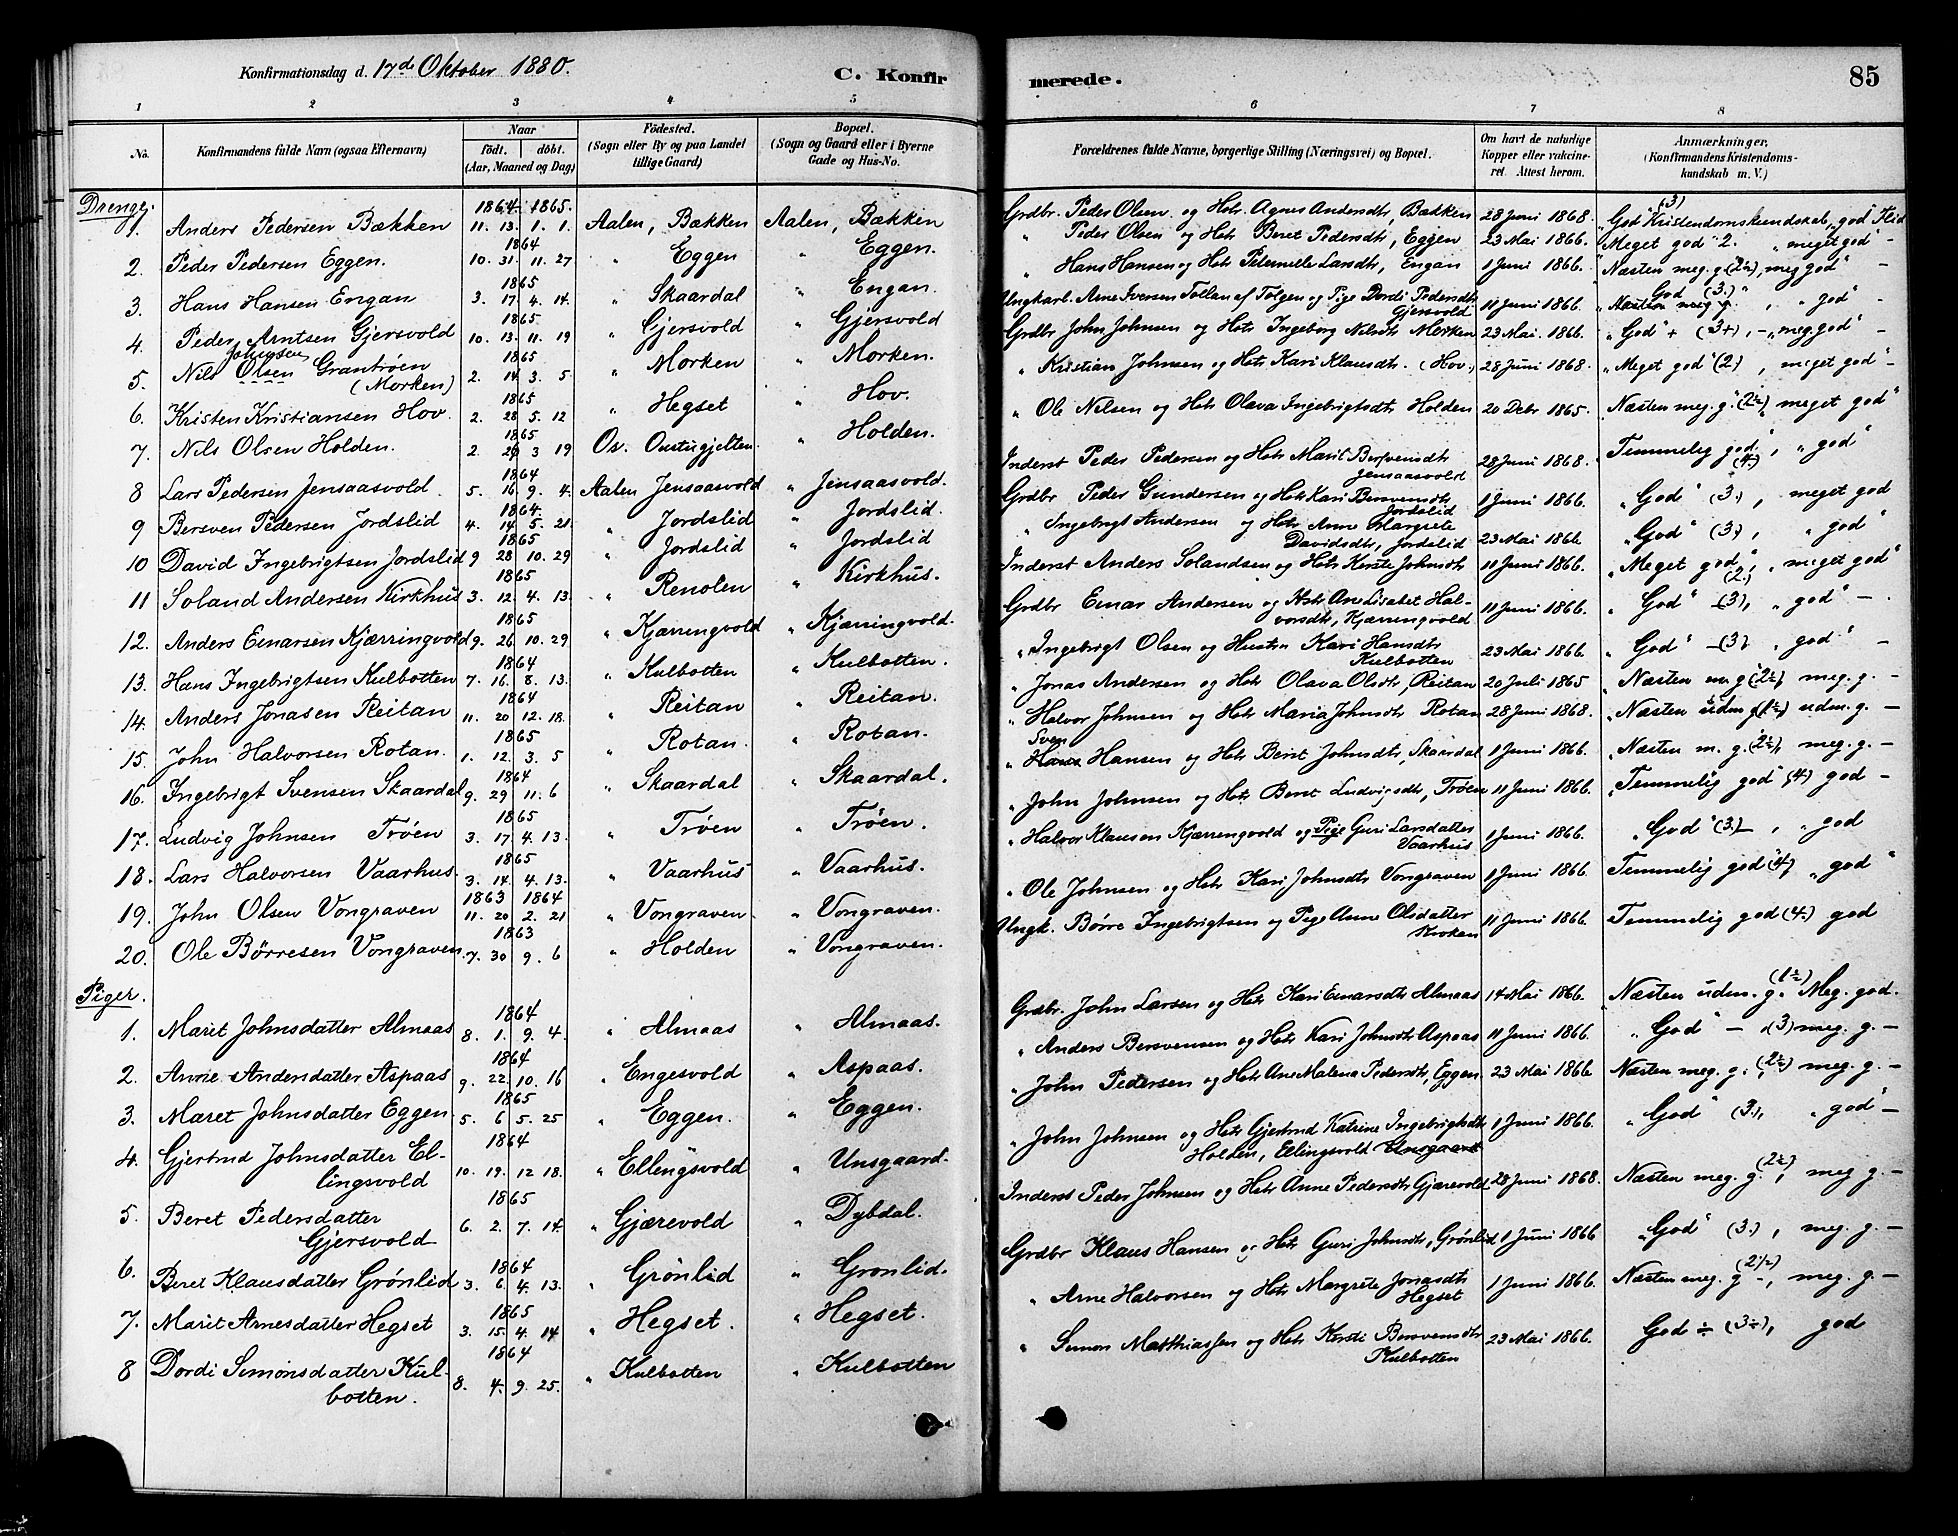 Konfirmationsdag d. 17de Oktober 1880. C. Konfir
merede. 85
1 2 3 4 5 6 7 8
No. Konfirmandens fulde Navn (ogsaa Efternavn) Naar födt. döbt. (Aar, Maaned og Dag) Födested. (Sogn eller By og paa Landet tillige Gaard) Bopæl. (Sogn og Gaard eller i Byerne Gade og Hus-No. Forældrenes fulde Navne, borgerlige Stilling (Næringsvei) og Bopæl. Om havt de naturlige Kopper eller vakcineret. Attest herom. Anmærkninger, (Konfirmandens Kristendomskundskab m. V.)
Drenge.
1. Anders Pedersen Bækken 1864 11. 13. 1865 1. 1. Aalen, Bækken Aalen, Bækken Grdbr. Peder Olsen og Hstr Agnes Andersdtr, Bækken 28 Juni 1868. "God" Kristendomskundskab, (3) "god" Flid
2. Peder Pedersen Eggen. 1864 10. 31. 11. 27 " Eggen " Eggen. " Peder Olsen og Hstr Beret Pedersdtr, Eggen 23 Mai 1866. "Meget god" 2. "meget god" -
3. Hans Hansen Engan 1865 3. 17. 4. 14. " Skaardal " Engan. " Hans Hansen og Hstr Peternelle Larsdtr, Engan 1 Juni 1866. "Næsten meg. g. (2½), meg god" -
4. Peder Arntsen Gjersvold 1865 10. 13. 11. 19 " Gjersvold " Gjersvold Ungkarl. Arne Iversen Tollan af Tolgen og Pige Dordi Pedersdtr Gjersvold 11 Juni 1866. God (3.) Næsten meg g. , "god" -
5. Nils Johnsen Olsen Grantröen (Morken) 1865 2. 14. 3. 5. " Morken " Morken. Grdbr John Johnsen og Hstr Ingeborg Nilsdtr Morken 23 Mai. 1866. "God" + (3+), - "meg. god" -
6. Kristen Kristiansen Hov. 1865 2. 28. 5. 12 " Hegset " Hov. " Kristian Johnsen og Hstr Kari Klausdtr. (Hov.) 28 Juni 1868. "Meget god" (2) , meget god" -
7. Nils Olsen Holden. 1865 2. 24 3 19 Os. " Holden. " Ole Nilsen og Hstr Olava Ingebrigtsdtr Holden 20 Debr 1865. "Næsten mej. g." (2½) meget god"
8 Lars Pedersen Jensaasvold. 1864 5. 16. 9. 4. Aalen Jensaasvold " Jensaasvold. Inderst Peder Pedersen og Hstr Marit Bersvendtr Jensaasvold 28 Juni 1868. Temmelig god" (4.) , "god"
9 Bersven Pedersen Jordslid 1864. 4. 14. 5. 21. " Jordslid " Jordslid. Grdbr Peder Gundersen og Hstr Kari Bersvendtr Jordslid 1 Juni 1866. "God" (3.) , meget god
10 David Ingebrigtsen Jordslid 1865 9 28 10. 29 " Jordslid " Jordslid " Ingebrigt Andersen og Hstr Anne Margrete Davidsdtr, Jordslid 23 Mai 1866 "God" (3.) , "god"
11 Soland Andersen Kirkhus 1865 3. 12. 4. 13. " Renolen " Kirkhus. Inderst Anders Solandsen og Hstr Kirste Johnsdtr 11 Juni 1866. "Meget god" (2.) , "meget god"
12. Anders Einarsen Kjærringvold 1865 9. 26. 10. 29 " Kjærrengvold " Kjærringvold. Grdbr Einar Andersen og Hstr Ane Lisabet Halvorsdtr, Kjærrengvold 11 Juni 1866. "God" - (3), "god" - .
13. Hans Ingebrigtsen Kulbotten 1864 7. 16. 8. 13. " Kulbotten " Kulbotten. " Ingebrigt Olsen og Hustru Kari Hansdtr Kulbotten 23 Mai 1866. "God" - (3) , "god" -
14. Anders Jonasen Reitan 1864 11. 20 12. 18. " Reitan " Reitan. " Jonas Andersen og Hstr Olava Olsdtr, Reitan 20 Juli 1865 "Næsten m. g (2½), meg. g. -
15. John Halvorsen Rotan. 1865 1. 12. 3. 5 " Rotan. " Rotan. " Halvor Johnsen og Hstr Maria Johnsdtr Rotan 28 Juni 1868. "Næsten udm. g (1½) udm. g. -
16. Ingebrigt Svensen Skaardal 1864 9. 29 11. 6 " Skaardal " Skaardal. " Sven Hans Hansen og Hstr Beret Johnsdtr, Skaardal 1 Juni 1866. "Næsten m. g. (2½), meg. g. -
17. Ludvig Johnsen Tröen 1865 3. 17 4. 13. " Tröen " Tröen. " John Johnsen og Hstr Beret Ludvigsdtr, Tröen 11 Juni 1866. "Temmelig god" (4.) god -
18. Lars Halvorsen Vaarhus. 1865 3. 14. 4. 13. " Vaarhus " Vaarhus. " Halvor Klausen Kjærrengvold og Pige Guri Larsdatter Vaarhus 1 Juni 1866. "God" (3.) - , "god
19. John Olsen Vongraven 1863 11. 20 1864 2. 21 " Vongraven " Vongraven. " Ole Johnsen og Hstr Kari Johnsdtr Vongraven 1 Juni 1866. Temmelig god (4) "god"
20. Ole Börresen Vongraven 1863 7. 30 9. 6 " Holden " Vongraven. Ungk. Börre Ingebrigtsen og Pige Anne Olsdatter Kroken 11 Juni 1866. Temmelig god (4.) god
Piger.
1. Maret Johnsdatter Almaas 1864 8. 1. 9. 4. " Almaas " Almaas. Grdbr. John Larsen og Hstr Kari Einarsdtr Almaas 14 Mai 1866. Næsten udm. g. (1½) Meg. god.
2. Anne Andersdatter Aspaas 1864 9. 22. 10. 16 " Engesvold " Aspaas. " Anders Bersvensen og Hstr Kari Johnsdtr Aspaas 11 Juni 1866. "God" - (3) meg. g. -
3. Maret Johnsdatter Eggen 1865 5. 6 5. 25 " Eggen. " Eggen. " John Pedersen og Hstr Ane Malena Pedersdtr, Eggen. 23 Mai 1866. Næsten meg. g. , (2½) meg. g. -
4. Gjertrud Johnsdatter Ellingsvold 1864 10. 19. 12 18. " Ellengsvold " Unsgaard. " John Johnsen og Hstr Gjertrud Katrine Ingebrigtsdtr Holden, Ellingsvold Unsgaard 1 Juni 1866. "God" (3.) , "god" -
5. Beret Pedersdatter Gjersvold 1865 6. 2. 7. 14. " Gjærevold " Dybdal. Inderst Peder Johnsen og Hstr Anne Pedersdtr Gjærevold 28 Juni 1868. Næsten meg. g. (2½) , meg g. -
6. Beret Klausdatter Grönlid 1864 3. 6 4. 13. " Grönlid " Gronlid. Grdbr Klaus Hansen og Hstr Guri Johnsdtr, Grönlid 1 Juni 1866 "God" (3.) , meg. g. -
7. Marit Arnesdatter Hegset 1865 3. 15. 4. 14 " Hegset. " Hegset. " Arne Halvorsen og Hstr Margrete Jonasdtr Hegset 1 Juni 1866. Næsten meg. g (2½) -, meg. g. -
8 Dordi Simonsdatter Kulbotten. 1864 8. 4. 9. 25. " Kulbotten " Kulbotten " Simon Matthiassen og Hstr Kersti Bersvendtr Kulbotten 23 Mai 1866. God ÷ (3÷), god